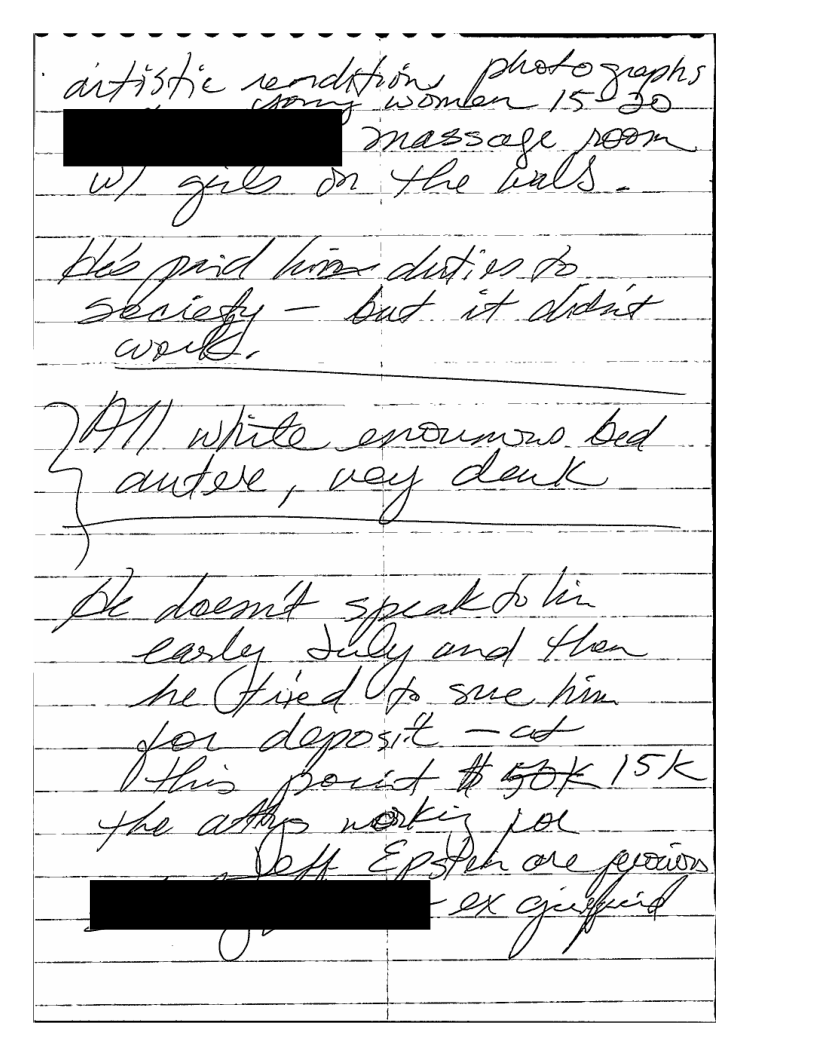 artistic rendition, photographs
young women 15-20
massage room
w/ girls on the walls.
He's paid him duties to
society - but it didn't
work.
All white enoumous bed
autere, very dark
He doesn't speak to him
early July and then
he tried to sue him
for deposit - at
this point $ 50K 15K
the attys working for
Jeff Epstein are
- ex